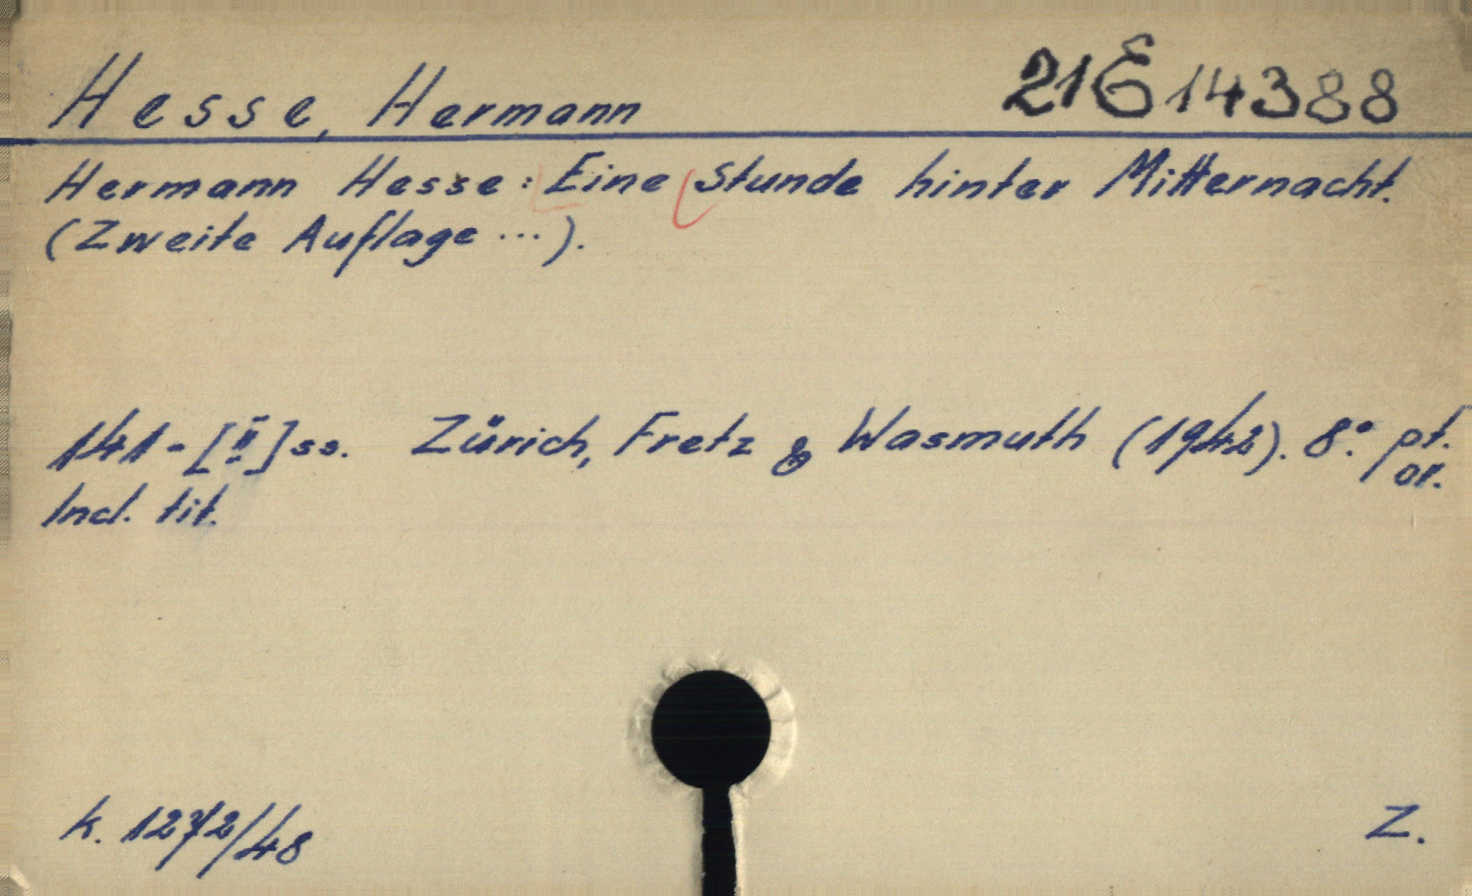 Hesse, Hermann 21E14388
Hermann Hesse: Eine Stunde hinter Mitternacht.
(Zweite Auflage ...).
141-[II]ss. Zürich, Fretz & Wasmuth (1942). 8°. pt.
or.
Incl. tit.
k. 1272/48 Z.